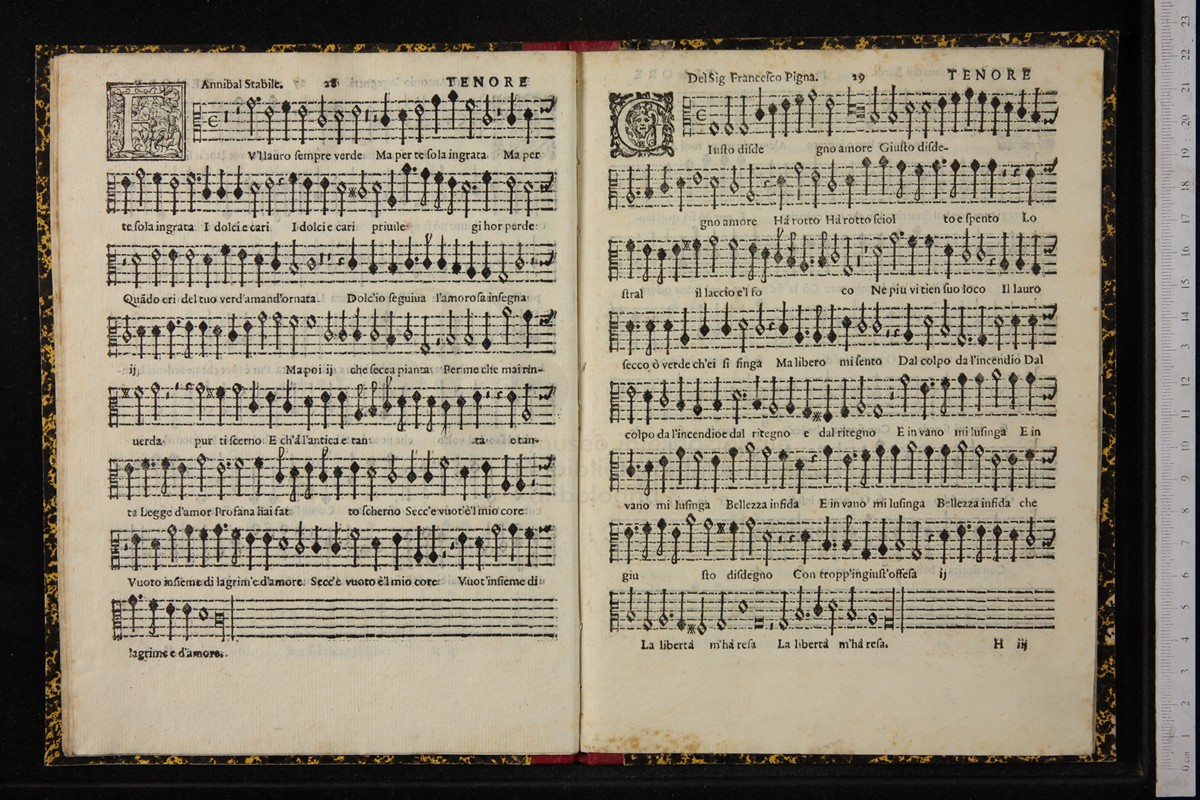 Annibal Stabile. 28 TENORE
F V'l lauro sempre verde Ma per te sola ingrata Ma per
te sola ingrata I dolci e cari I dolci e cari priuile- gi hor perde
Quãdo eri del tuo verd'amand'ornata. Dolc'io seguiua l'amorosa insegna
ij, Ma poi ij che secca pianta Per me che mai rin-
uerda. pur ti scerno E ch'à l'antica e tan ta e tan-
ta Legge d'amor Profana hai fat to scherno Secc'e vuot'è'l mio core
Vuoto insieme di lagrim'e d'amore. Secc'e vuoto è'l mio core Vuot'insieme di
lagrime e d'amore.
Del Sig Francesco Pigna. 29 TENORE
G Iusto disde gno amore Giusto disde-
gno amore Hà rotto Hà rotto sciol to e spento Lo
stral il laccio e'l fo co Ne piu vi tien suo loco Il lauro
secco ò verde ch'ei si finga Ma libero mi sento Dal colpo da l'incendio Dal
colpo da l'incendio e dal ritegno e dal ritegno E in vano mi lusinga E in
vano mi lusinga Bellezza infida E in vano mi lusinga Bellezza infida che
giu sto disdegno Con tropp'ingiust'offesa ij
La libertà m'hà resa La libertà m'hà resa. H iij
0 cm 1 2 3 4 5 6 7 8 9 10 11 12 13 14 15 16 17 18 19 20 21 22 23